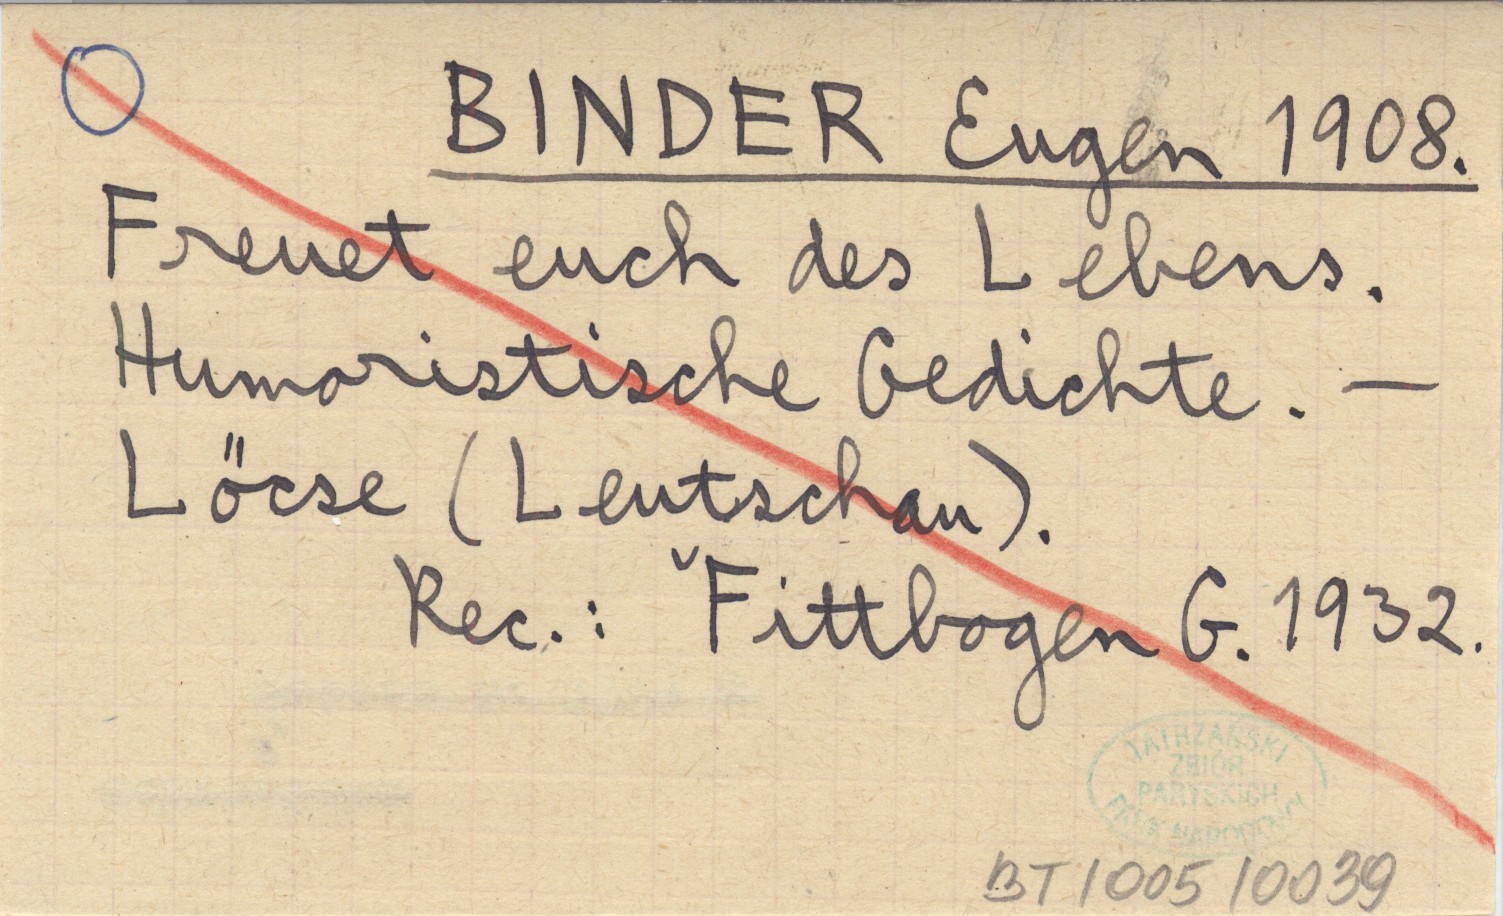 BINDER Eugen 1908.
Freuet euch des Lebens.
Humoristische Gedichte. —
Löcse (Leutschau).
Rec.: ˇFittbogen G. 1932.
TATRZAŃSKI
ZBIÓR
PARYSKICH
BT 1005 10039